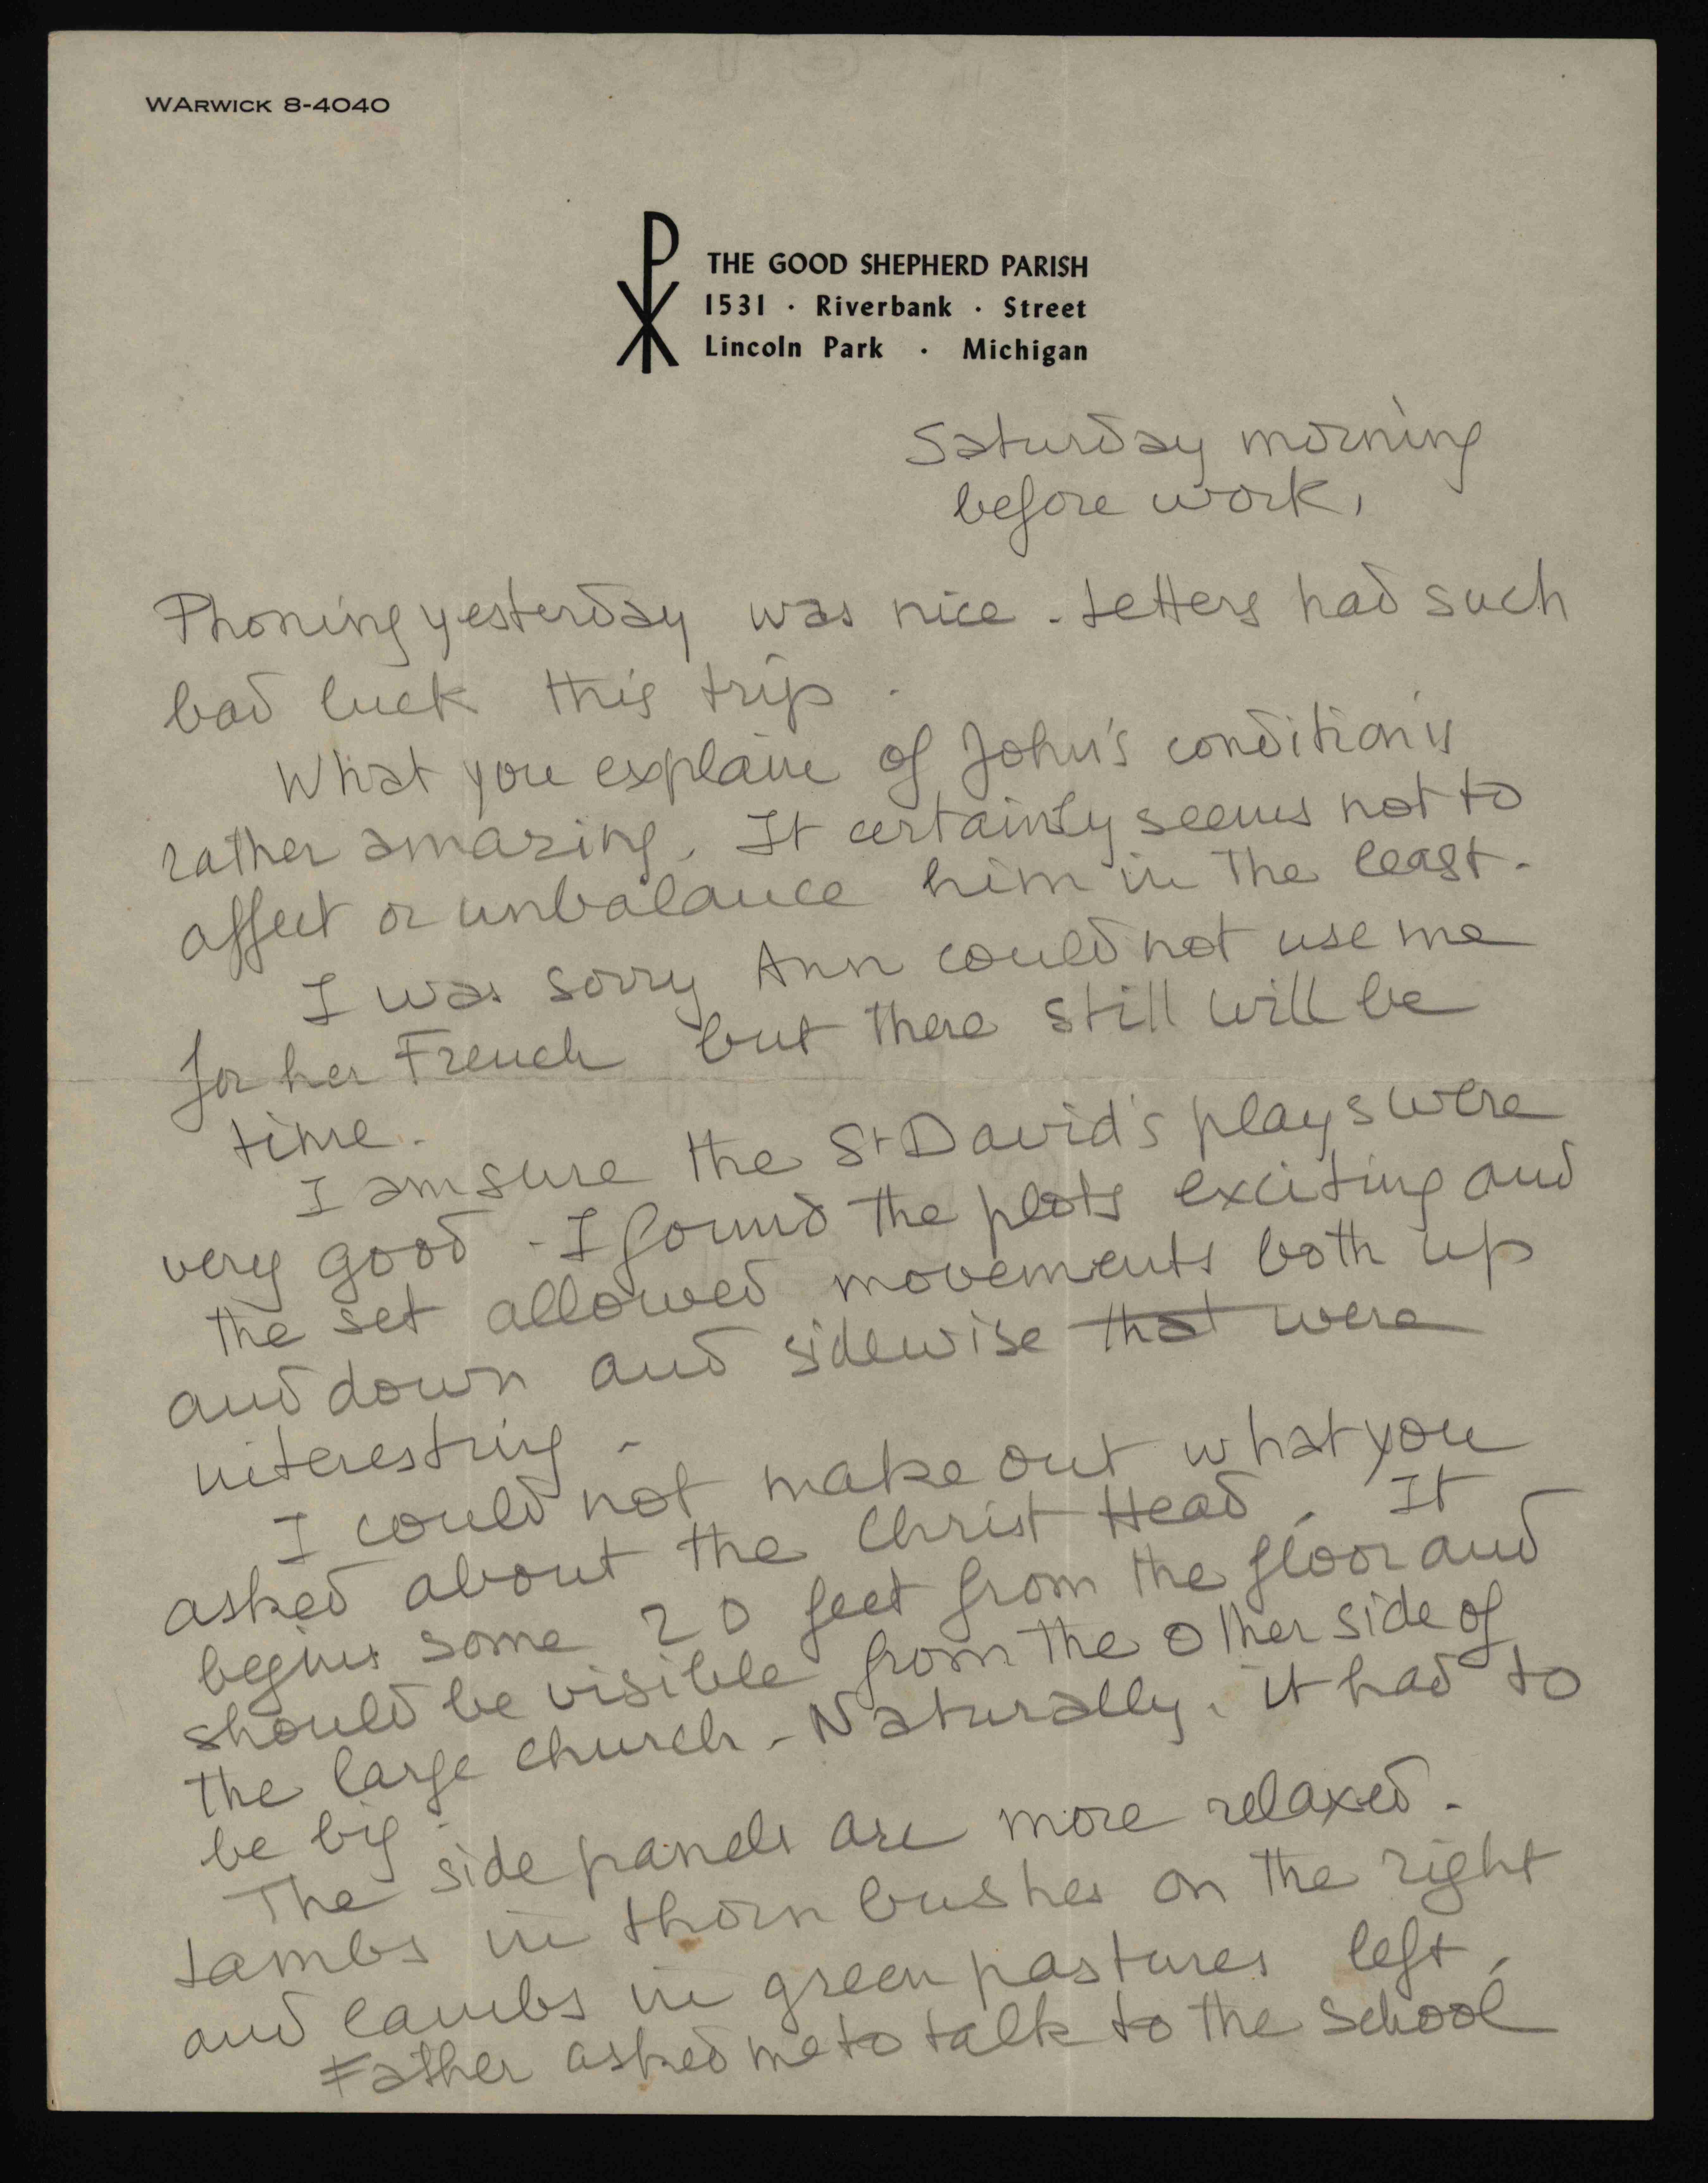 WARWICK 8-4040
THE GOOD SHEPHERD PARISH
1531 · Riverbank · Street
Lincoln Park · Michigan
Saturday morning
before work,
Phoning yesterday was nice. Letters had such
bad luck this trip.
What you explain of John's condition is
rather amazing. It certainly seems not to
affect or unbalance him in the least.
I was sorry Ann could not use me
for her French but there still will be
time.
I am sure the St David's plays were
very good. I found the plots exciting and
the set allowed movements both up
and down and sidewise that were
interesting.
I could not make out what you
asked about the Christ Head. It
begins some 20 feet from the floor and
should be visible from the other side of
the large church. Naturally, it had to
be big.
The side panels are more relaxed.
Lambs in thorn bushes on the right
and lambs in green pastures left.
Father asked me to talk to the school